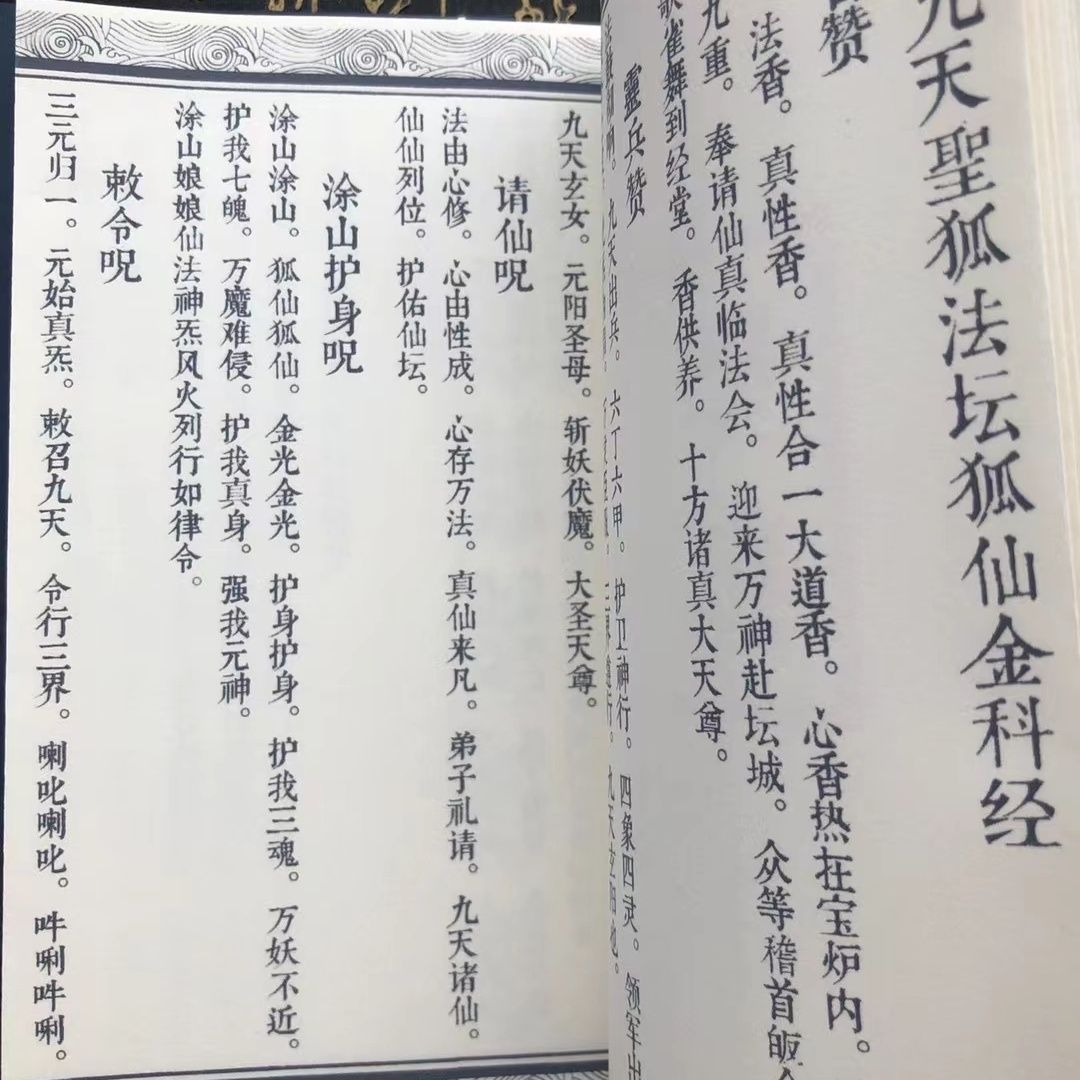 九天聖狐法坛狐仙金科经
赞
法香。真性香。真性合一大道香。心香热在宝炉内。
九重。奉请仙真临法会。迎来万神赴坛城。众等稽首皈
歌雀舞到经堂。香供养。十方诸真大天尊。
靈兵赞
九天出兵。六丁六甲。护卫神行。四象四灵。领军出
九天玄女。元阳圣母。斩妖伏魔。大圣天尊。
请仙呪
法由心修。心由性成。心存万法。真仙来凡。弟子礼请。九天诸仙。
仙仙列位。护佑仙坛。
涂山护身呪
涂山涂山。狐仙狐仙。金光金光。护身护身。护我三魂。万妖不近。
护我七魄。万魔难侵。护我真身。强我元神。
涂山娘娘仙法神炁风火列行如律令。
敕令呪
三元归一。元始真炁。敕召九天。令行三界。喇叱喇叱。吽唎吽唎。